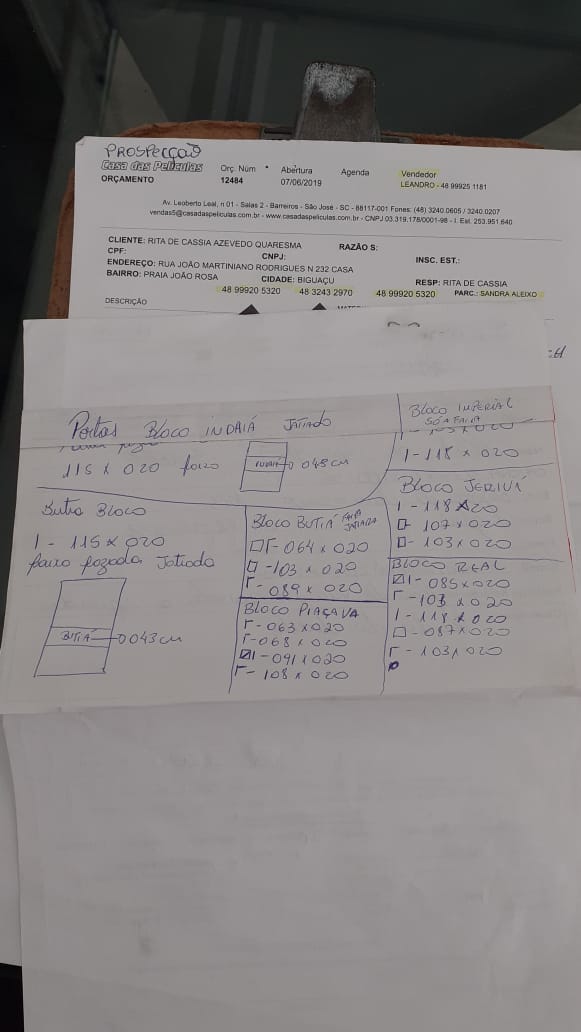 PROSPECÇÃO
Casa das Películas
ORÇAMENTO
Orç. Núm
12484
Abertura
07/06/2019
Agenda
Vendedor
LEANDRO - 48 99925 1181
Av. Leoberto Leal, n 01 - Salas 2 - Barreiros - São José - SC - 88117-001 Fones: (48) 3240.0605 / 3240.0207
vendas5@casadaspeliculas.com.br - www.casadaspeliculas.com.br - CNPJ 03.319.178/0001-98 - I. Est. 253.951.640
CLIENTE: RITA DE CASSIA AZEVEDO QUARESMA RAZÃO S:
CPF: CNPJ: INSC. EST.:
ENDEREÇO: RUA JOÃO MARTINIANO RODRIGUES N 232 CASA
BAIRRO: PRAIA JOÃO ROSA CIDADE: BIGUAÇU RESP: RITA DE CASSIA
48 99920 5320 48 3243 2970 48 99920 5320 PARC.: SANDRA ALEIXO
DESCRIÇÃO
Portas Bloco INDAIÁ JATIADO
115 x 020 faixo
048 cm
Bloco IMPERIAL
SO A FAIXA
1-118 x 020
Butia Bloco
1 - 115 x 020
faixo Jatiado
BUTIÁ 0043 cm
Bloco BUTIÁ FAIXA JATIADA
Γ-064 x 020
-103 x 020
Γ-089 x 020
Bloco PIAÇAVA
Γ-063 x 020
Γ-068 x 020
1-091 x 020
Γ-108 x 020
Bloco JERIVÁ
1-118 x 20
- 107 x 020
- 103 x 020
BLOCO REAL
1-085 x 020
Γ-103 x 020
1-118 x 020
- 087 x 020
Γ-103 x 020